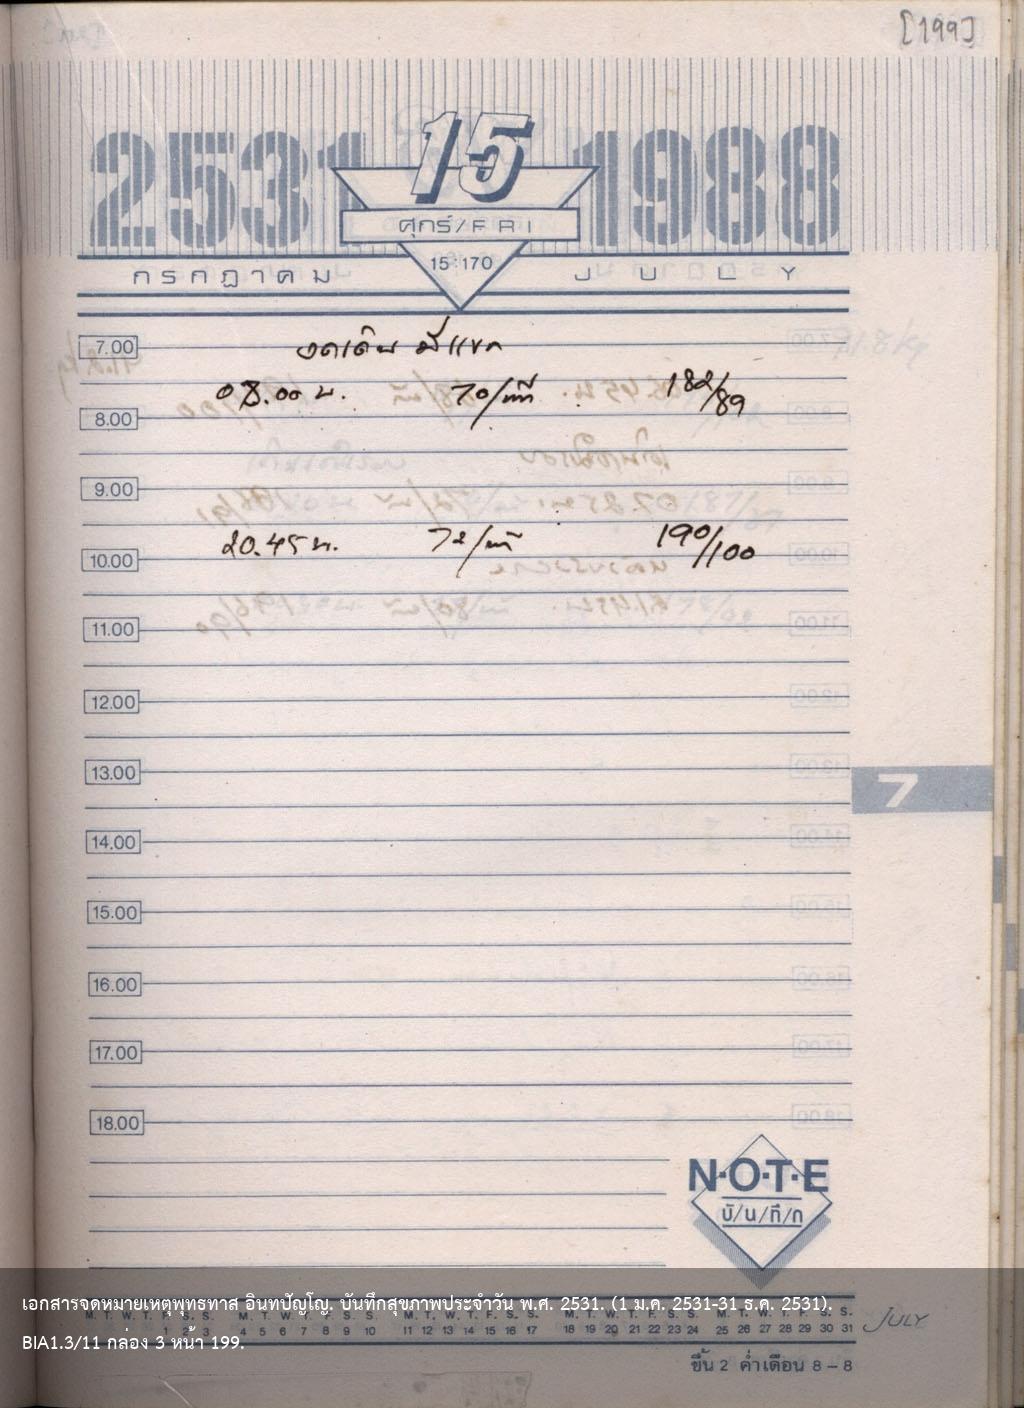 [199]
2531 15 1988
ศุกร์/FRI
15-170
กรกฎาคม JULY
7.00
งดเดิน มีแขก
08.00 น. 70/นาที 182/89
8.00
9.00
20.45 น. 72/นาที 190/100
10.00
11.00
12.00
13.00
7
14.00
15.00
16.00
17.00
18.00
N·O·T·E
บั/น/ทึ/ก
เอกสารจดหมายเหตุพุทธทาส อินทปัญโญ. บันทึกสุขภาพประจำวัน พ.ศ. 2531. (1 ม.ค. 2531-31 ธ.ค. 2531).
M. T. W. T. F. S. S. M. T. W. T. F. S. S. M. T. W. T. F. S. S. M. T. W. T. F. S. S. M. T. W. T. F. S. S.
1 2 3 4 5 6 7 8 9 10 11 12 13 14 15 16 17 18 19 20 21 22 23 24 25 26 27 28 29 30 31 JULY
BIA1.3/11 กล่อง 3 หน้า 199.
ขึ้น 2 ค่ำเดือน 8 – 8